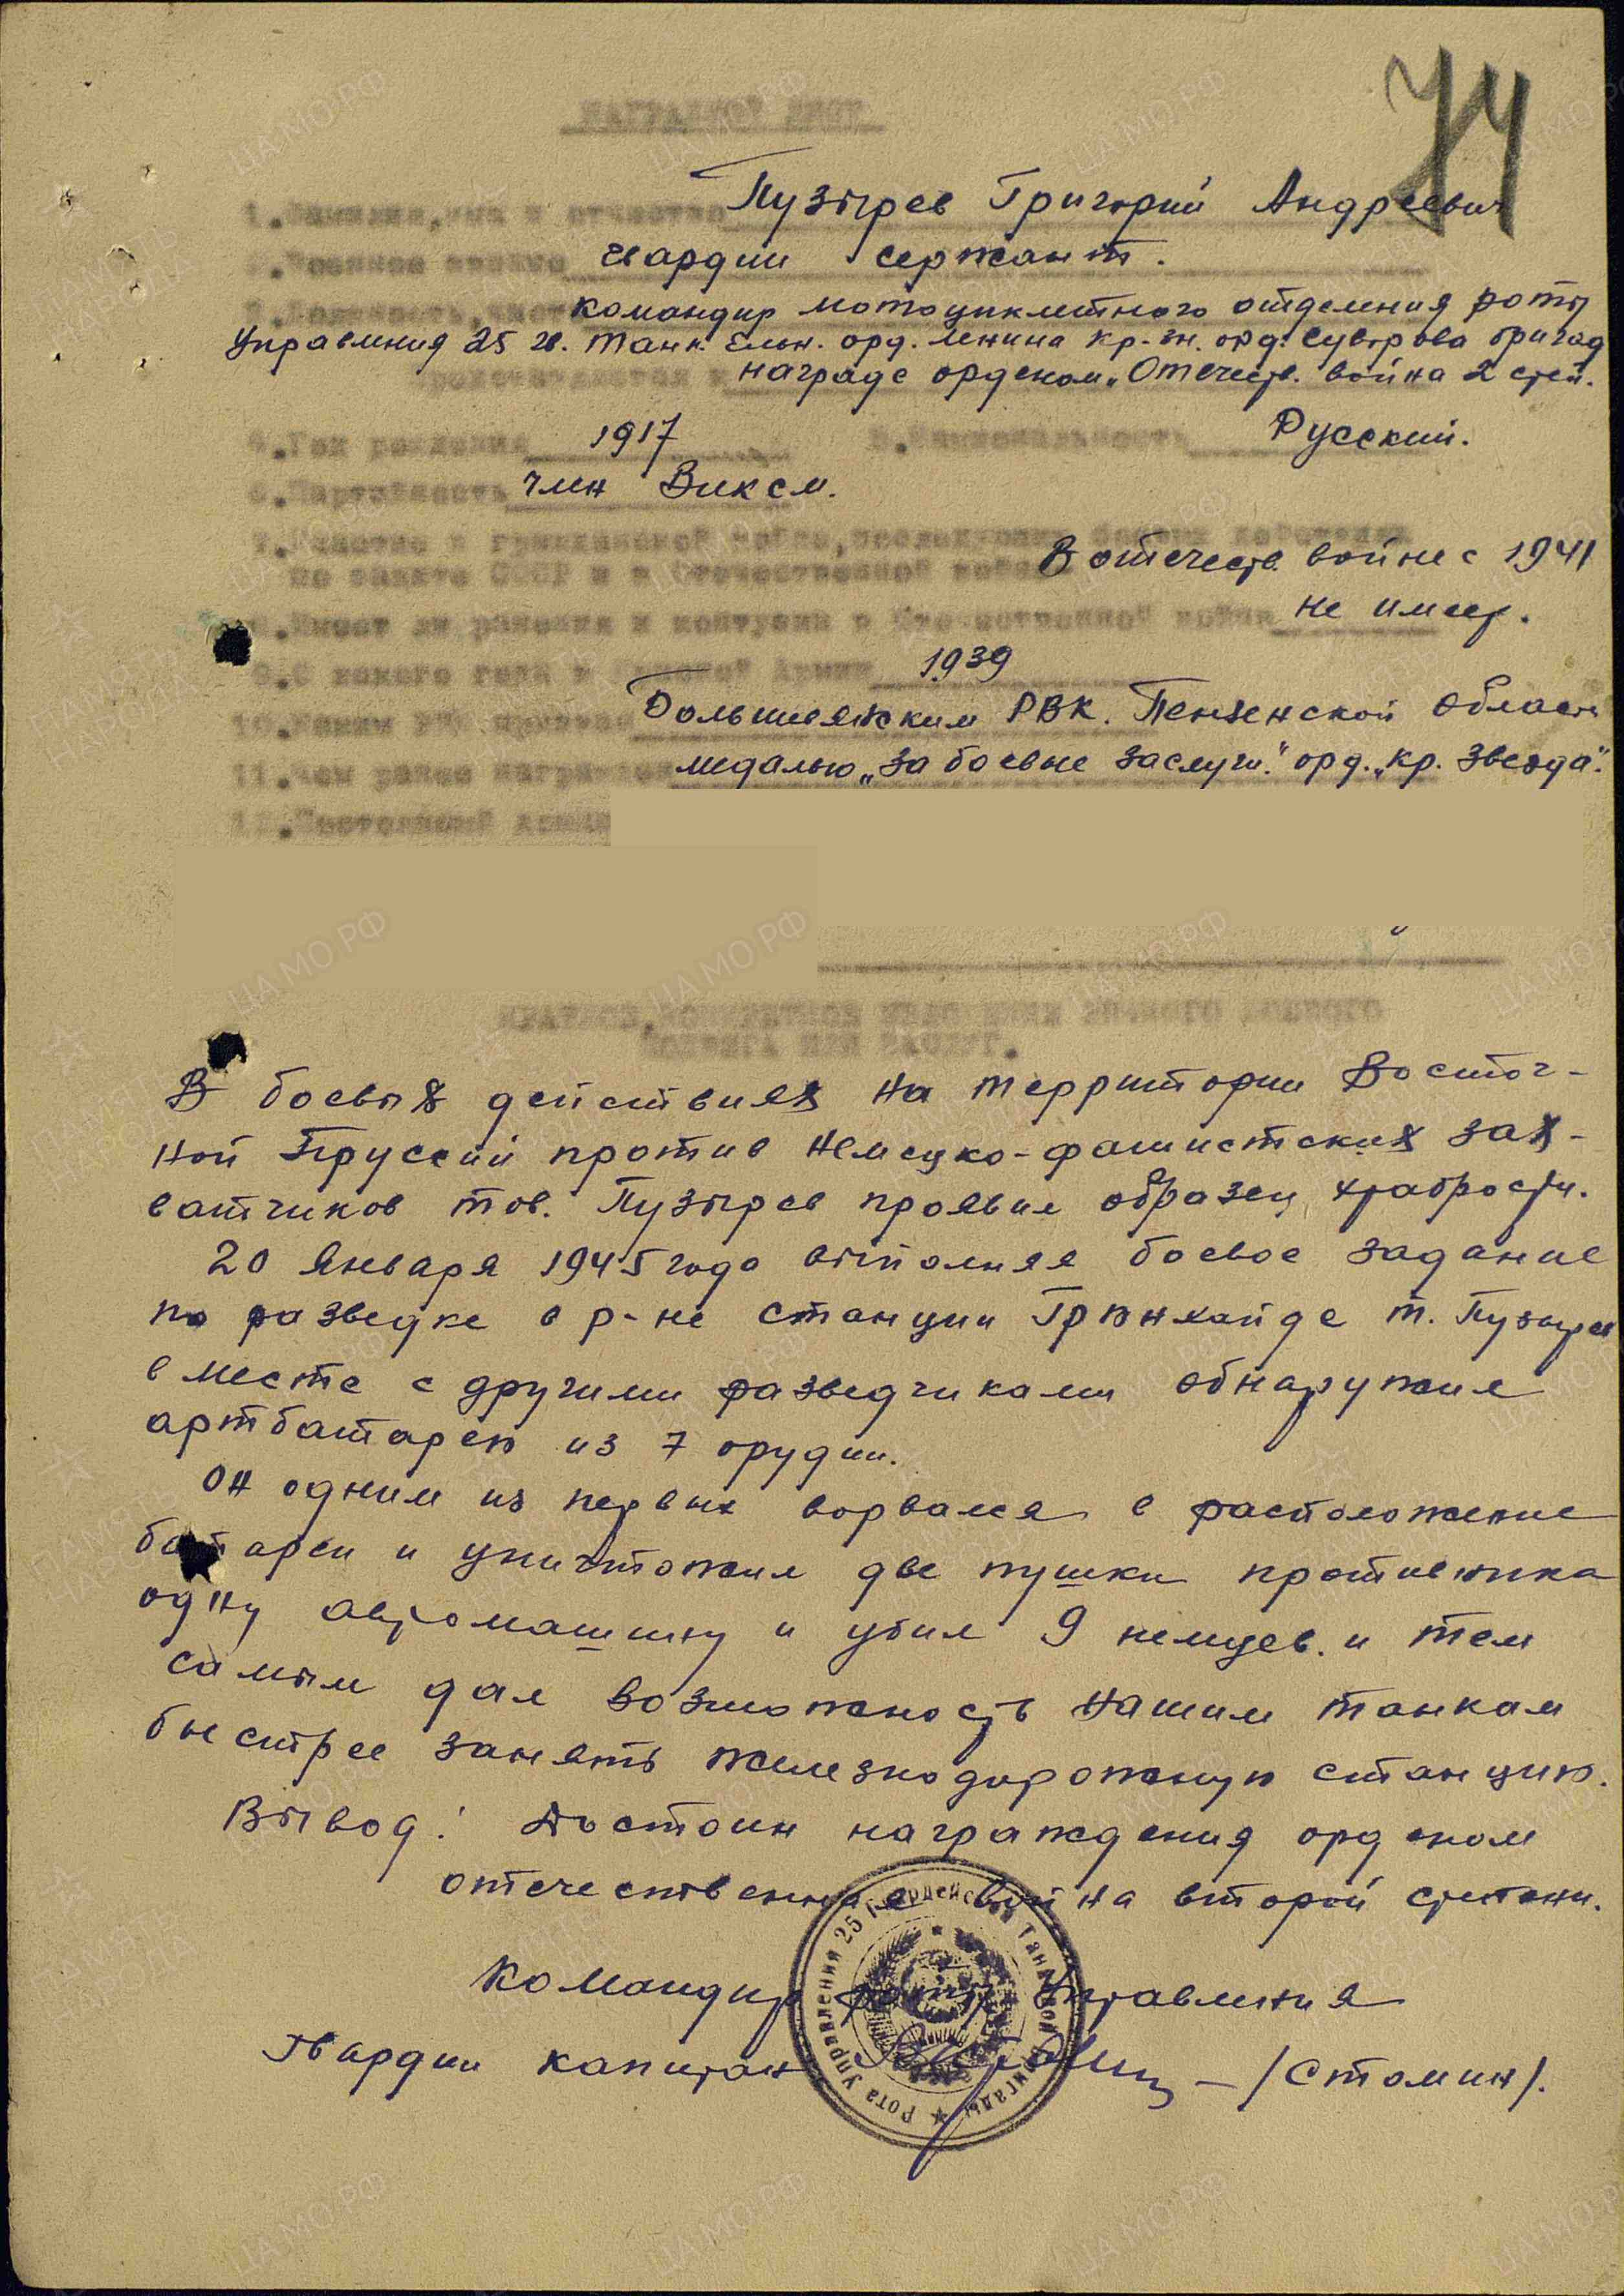 74
НАГРАДНОЙ ЛИСТ
1.Фамилия,имя и отчество Пузырев Григорий Андреевич
2.Военное звание гвардии сержант.
3.Должность,часть командир мотоциклетного отделения роты
Управления 25 гв. танк. Ельн. орд. Ленина Кр-зн. орд. Суворова бригад
Представляется к награде орденом „Отечеств. война 2 степ.
4.Год рождения 1917 5.Национальность Русский.
6.Партийность член Влксм.
7.Участие в гражданской войне,последующих боевых действиях
по защите СССР и в Отечественной войне В отечеств. войне с 1941
8.Имеет ли ранения и контузии в Отечественной войне не имеет.
9.С какого года в Красной Армии 1939
10.Каким РВК призван РВК. Пензенской области
11.Чем ранее награжден медалью „За боевые заслуги." орд. „Кр. Звезда".
12.Постоянный
КРАТКОЕ,КОНКРЕТНОЕ ИЗЛОЖЕНИЕ ЛИЧНОГО БОЕВОГО
ПОДВИГА ИЛИ ЗАСЛУГ.
В боевых действиях на территории Восточ-
ной Пруссий против немецко-фашистских зах-
ватчиков тов. Пузырев проявил образец храбрости.
20 Января 1945 года выполняя боевое задание
по разведке в р-не станции Грюнхайде т. Пузырев
вместе с другими разведчиками обнаружил
артбатарею из 7 орудии.
Он одним из первых ворвался в расположение
батареи и уничтожил две пушки противника
одну автомашину и убил 9 немцев. и тем
самым дал возможность нашим танкам
быстрее занять железнодорожную станцию.
Вывод: Достоин награждения орденом
отечественная война второй степени.
Командир роты Управления
Гвардии капитан — /Стомин/.
Рота управления 25 Гвардейской Танковой Бригады